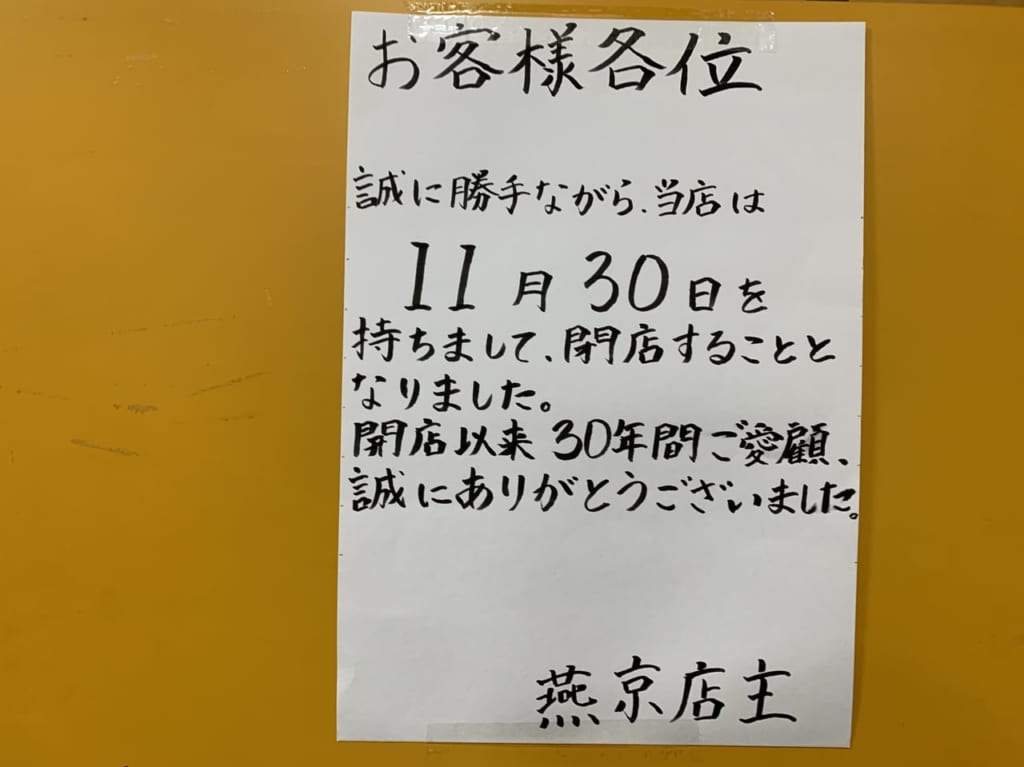 お客様各位
誠に勝手ながら、当店は
11月30日を
持ちまして、閉店することと
なりました。
開店以来30年間ご愛顧、
誠にありがとうございました。
燕京店主